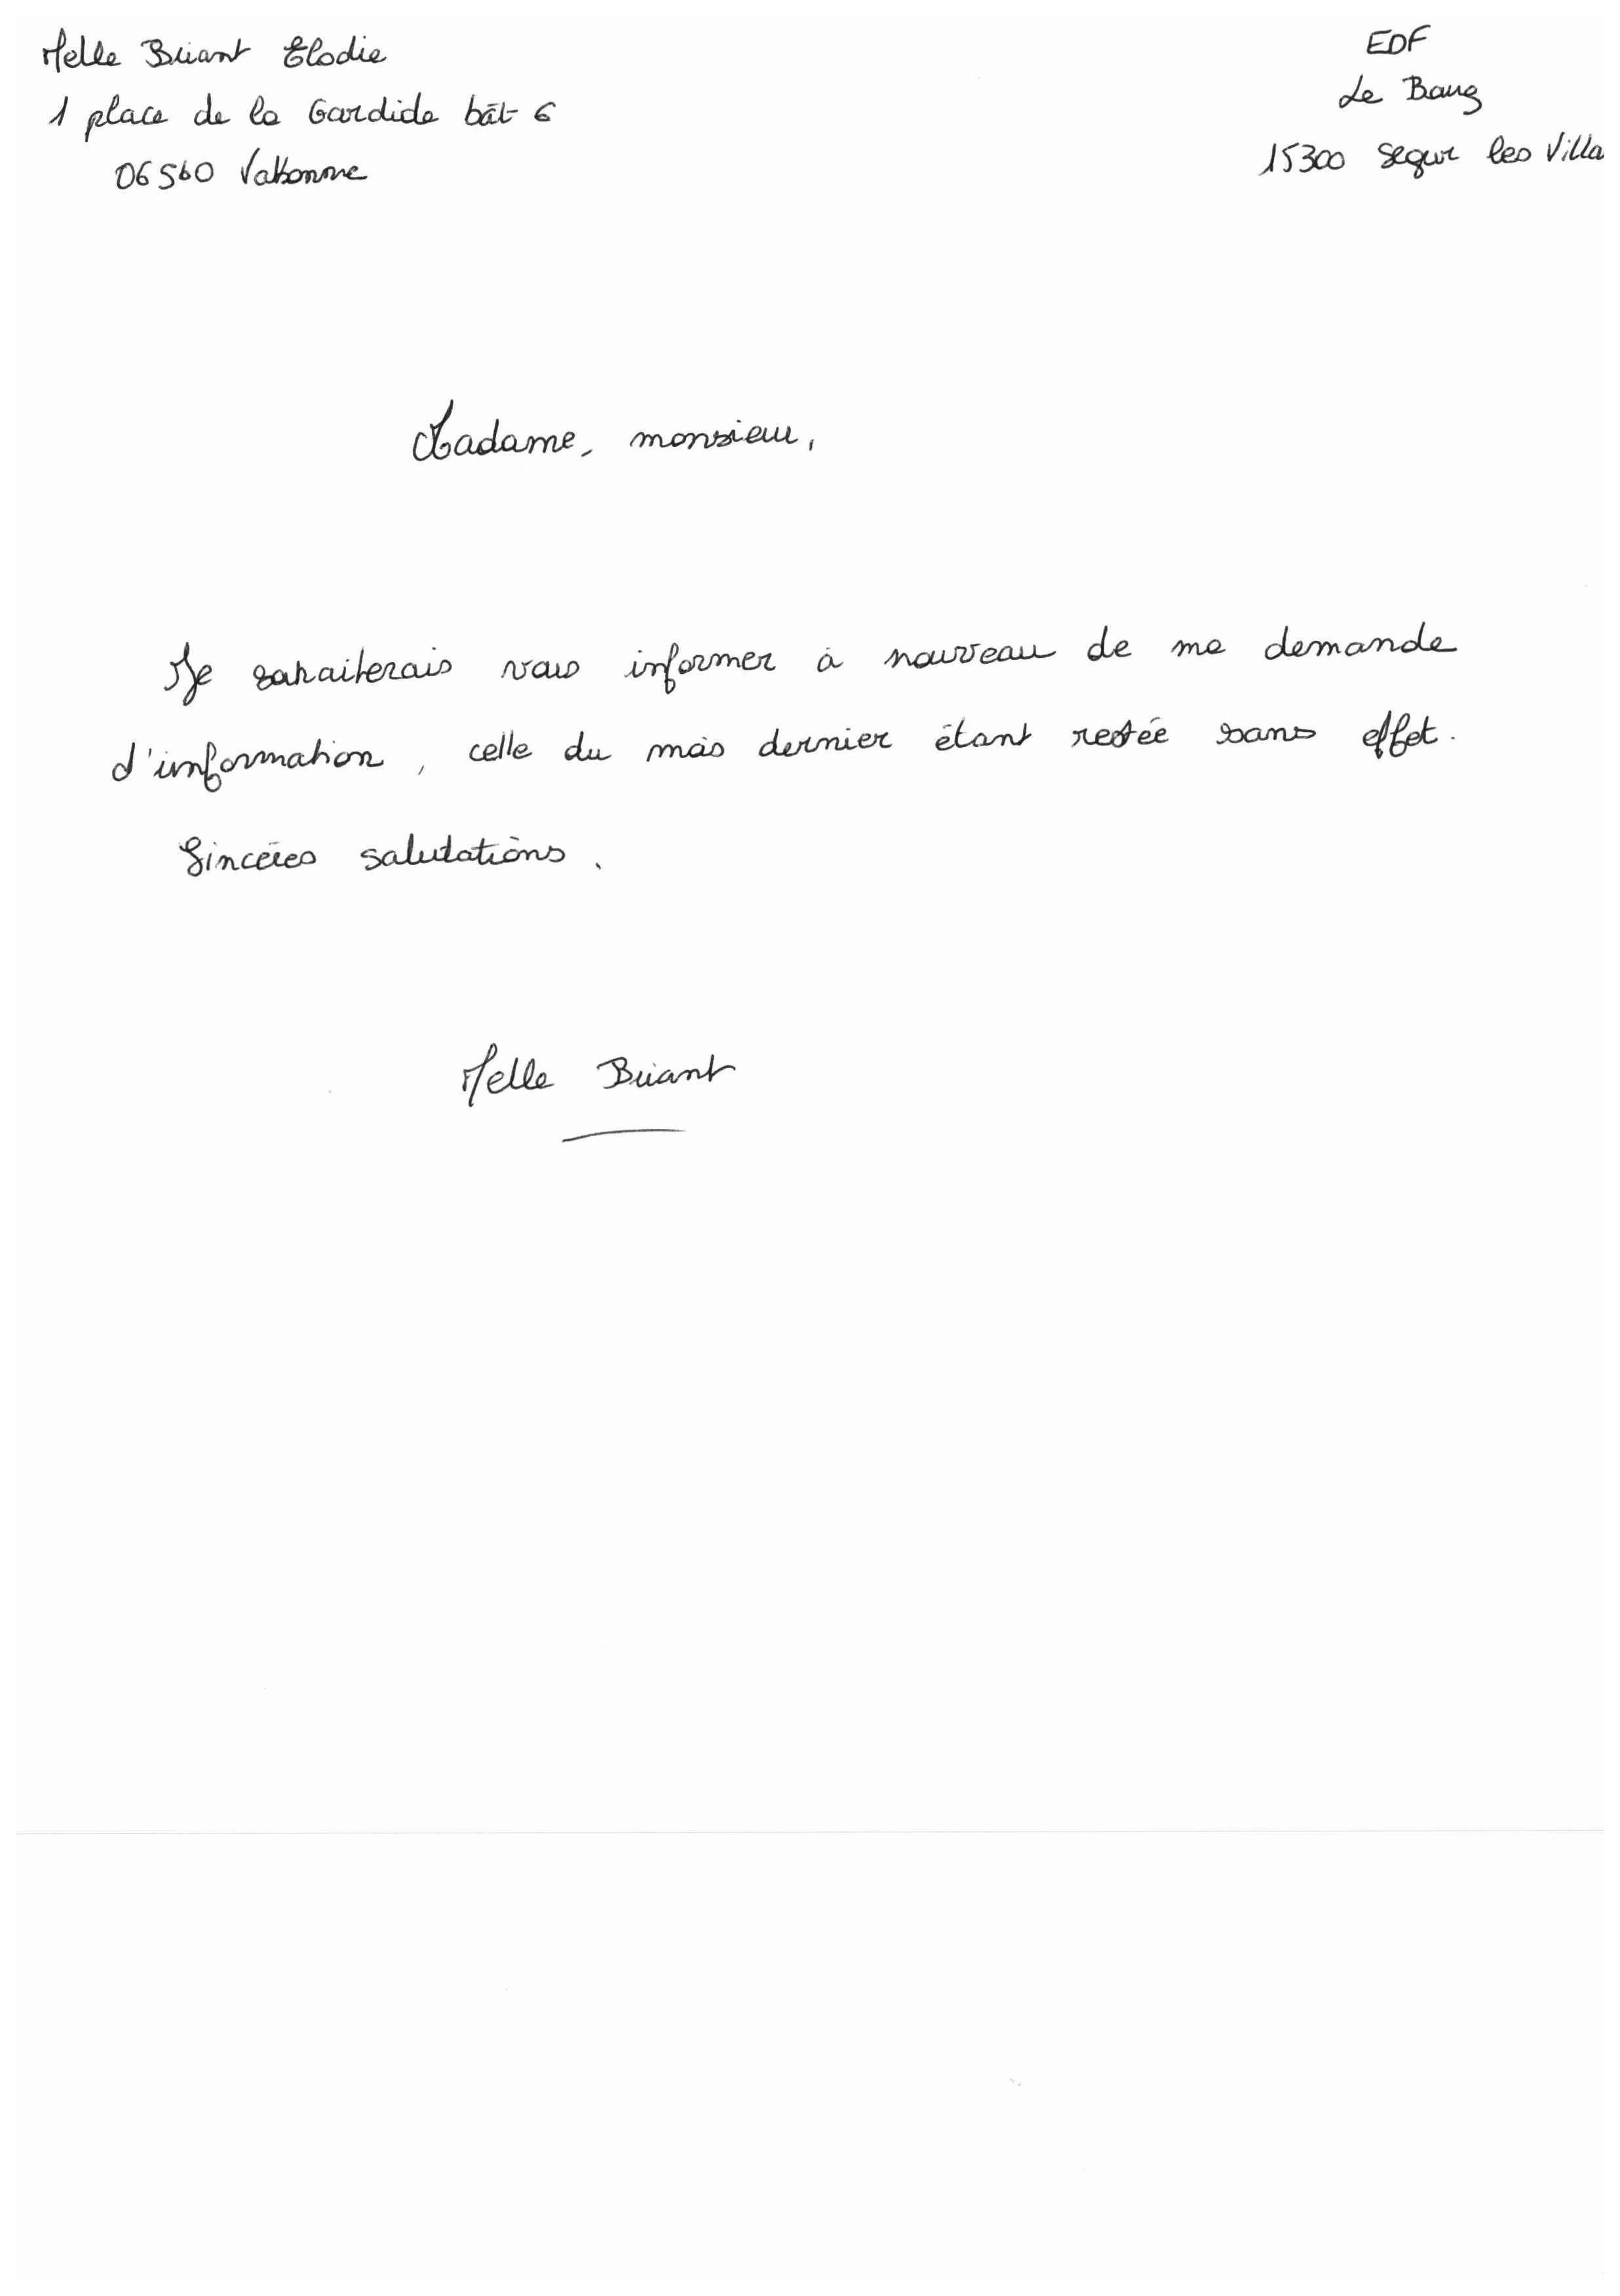 Melle Briant Elodie
1 place de la Gardide bât 6
06560 Valbonne
EDF
Le Bourg
15300 Segur les Villa
Madame, monsieur,
Je souhaiterais vous informer à nouveau de ma demande
d'information, celle du mois dernier étant restée sans effet.
Sincères salutations.
Melle Briant